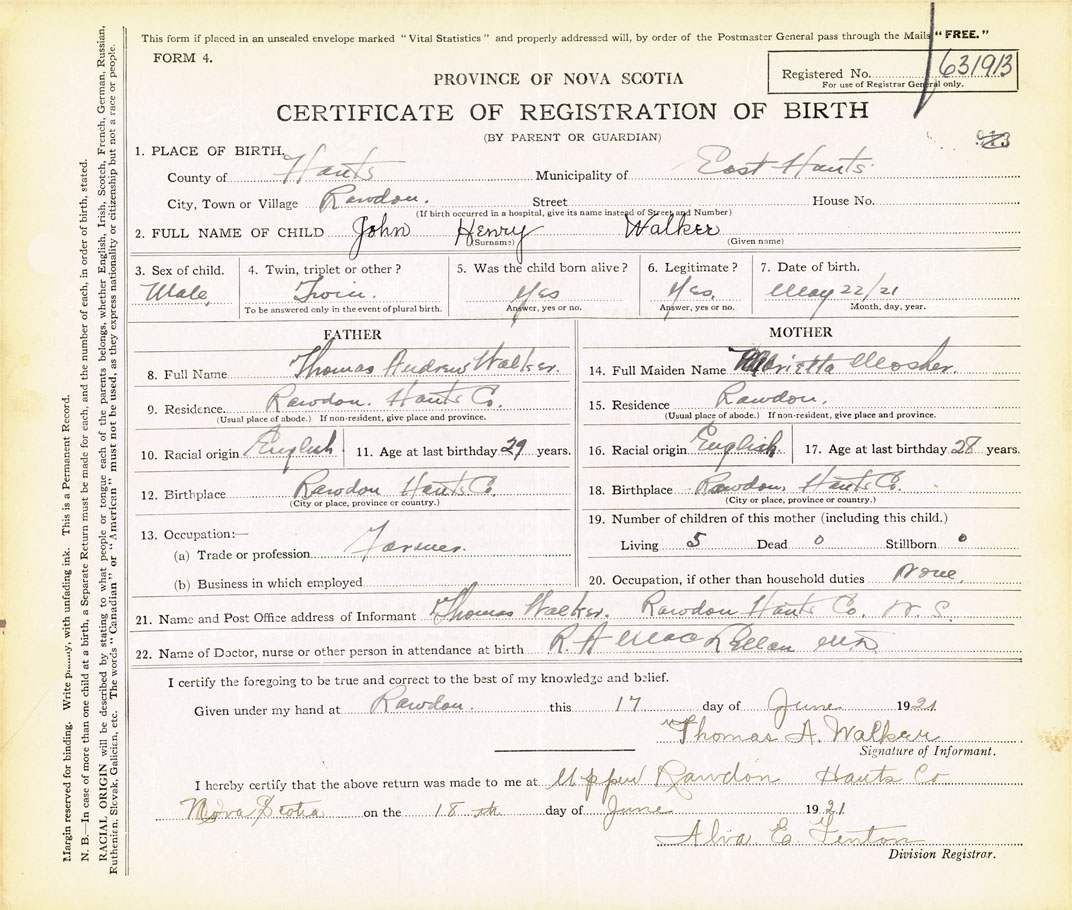 This form if placed in an unsealed envelope marked "Vital Statistics" and properly addressed will, by order of the Postmaster General pass through the Mails "FREE."
FORM 4.
Registered No. 631913
For use of Registrar General only.
PROVINCE OF NOVA SCOTIA
CERTIFICATE OF REGISTRATION OF BIRTH
(BY PARENT OR GUARDIAN)
1. PLACE OF BIRTH.
County of Hants Municipality of East Hants
City, Town or Village Rawdon. Street House No.
(If birth occurred in a hospital, give its name instead of Street and Number)
2. FULL NAME OF CHILD John Henry Walker
(Surname) (Given name)
3. Sex of child. 4. Twin, triplet or other? 5. Was the child born alive? 6. Legitimate? 7. Date of birth.
Male Twin. Yes Yes. May 22/21
To be answered only in the event of plural birth. Answer, yes or no. Answer, yes or no. Month, day, year.
FATHER
8. Full Name Thomas Andrew Walker.
9. Residence. Rawdon. Hants Co.
(Usual place of abode.) If non-resident, give place and province.
10. Racial origin English 11. Age at last birthday 29 years.
12. Birthplace Rawdon Hants Co.
(City or place, province or country.)
13. Occupation:—
(a) Trade or profession Farmer.
(b) Business in which employed
MOTHER
14. Full Maiden Name Marietta Mosher.
15. Residence Rawdon.
(Usual place of abode.) If non-resident, give place and province.
16. Racial origin English. 17. Age at last birthday 28 years.
18. Birthplace Rawdon, Hants Co.
(City or place, province or country.)
19. Number of children of this mother (including this child.)
Living 5 Dead 0 Stillborn 0
20. Occupation, if other than household duties None.
21. Name and Post Office address of Informant Thomas Walker. Rawdon Hants Co. N.S.
22. Name of Doctor, nurse or other person in attendance at birth R. A MacLellan MD
I certify the foregoing to be true and correct to the best of my knowledge and belief.
Given under my hand at Rawdon. this 17 day of June 1921
Thomas A. Walker
Signature of Informant.
I hereby certify that the above return was made to me at Upper Rawdon Hants Co
Nova Scotia on the 18 th day of June 1921
Alva E Fenton
Division Registrar.
Margin reserved for binding. Write with unfading ink. This is a Permanent Record.
N. B.—In case of more than one child at a birth, a Separate Return must be made for each, and the number of each, in order of birth, stated.
RACIAL ORIGIN will be described by stating to what people or tongue each of the parents belongs, whether English, Irish, Scotch, French, German, Russian,
Ruthenian, Slovak, Galician, etc. The words "Canadian" or "American" must not be used, as they express nationality or citizenship but not a race or people.